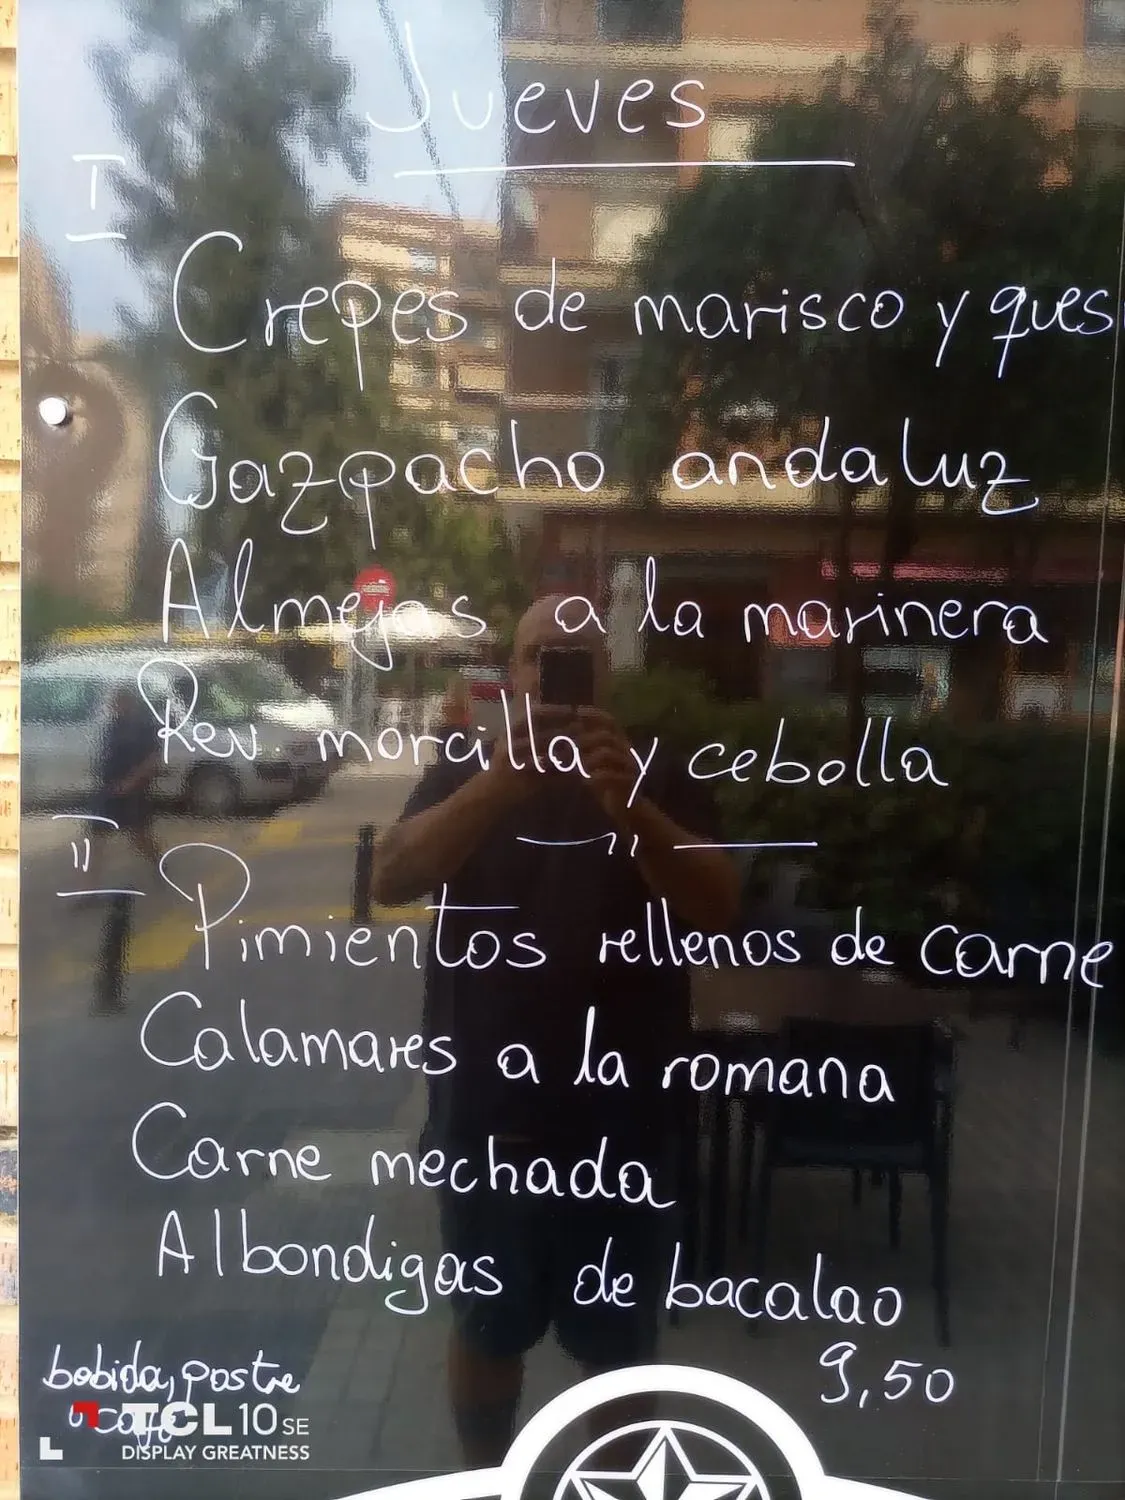 Jueves
I
Crepes de marisco y ques
Gazpacho andaluz
Almejas a la marinera
Rev. morcilla y cebolla
— 11 —
II
Pimientos rellenos de carne
Calamares a la romana
Carne mechada
Albondigas de bacalao
9,50
bebida, postre
TCL 10 SE
DISPLAY GREATNESS